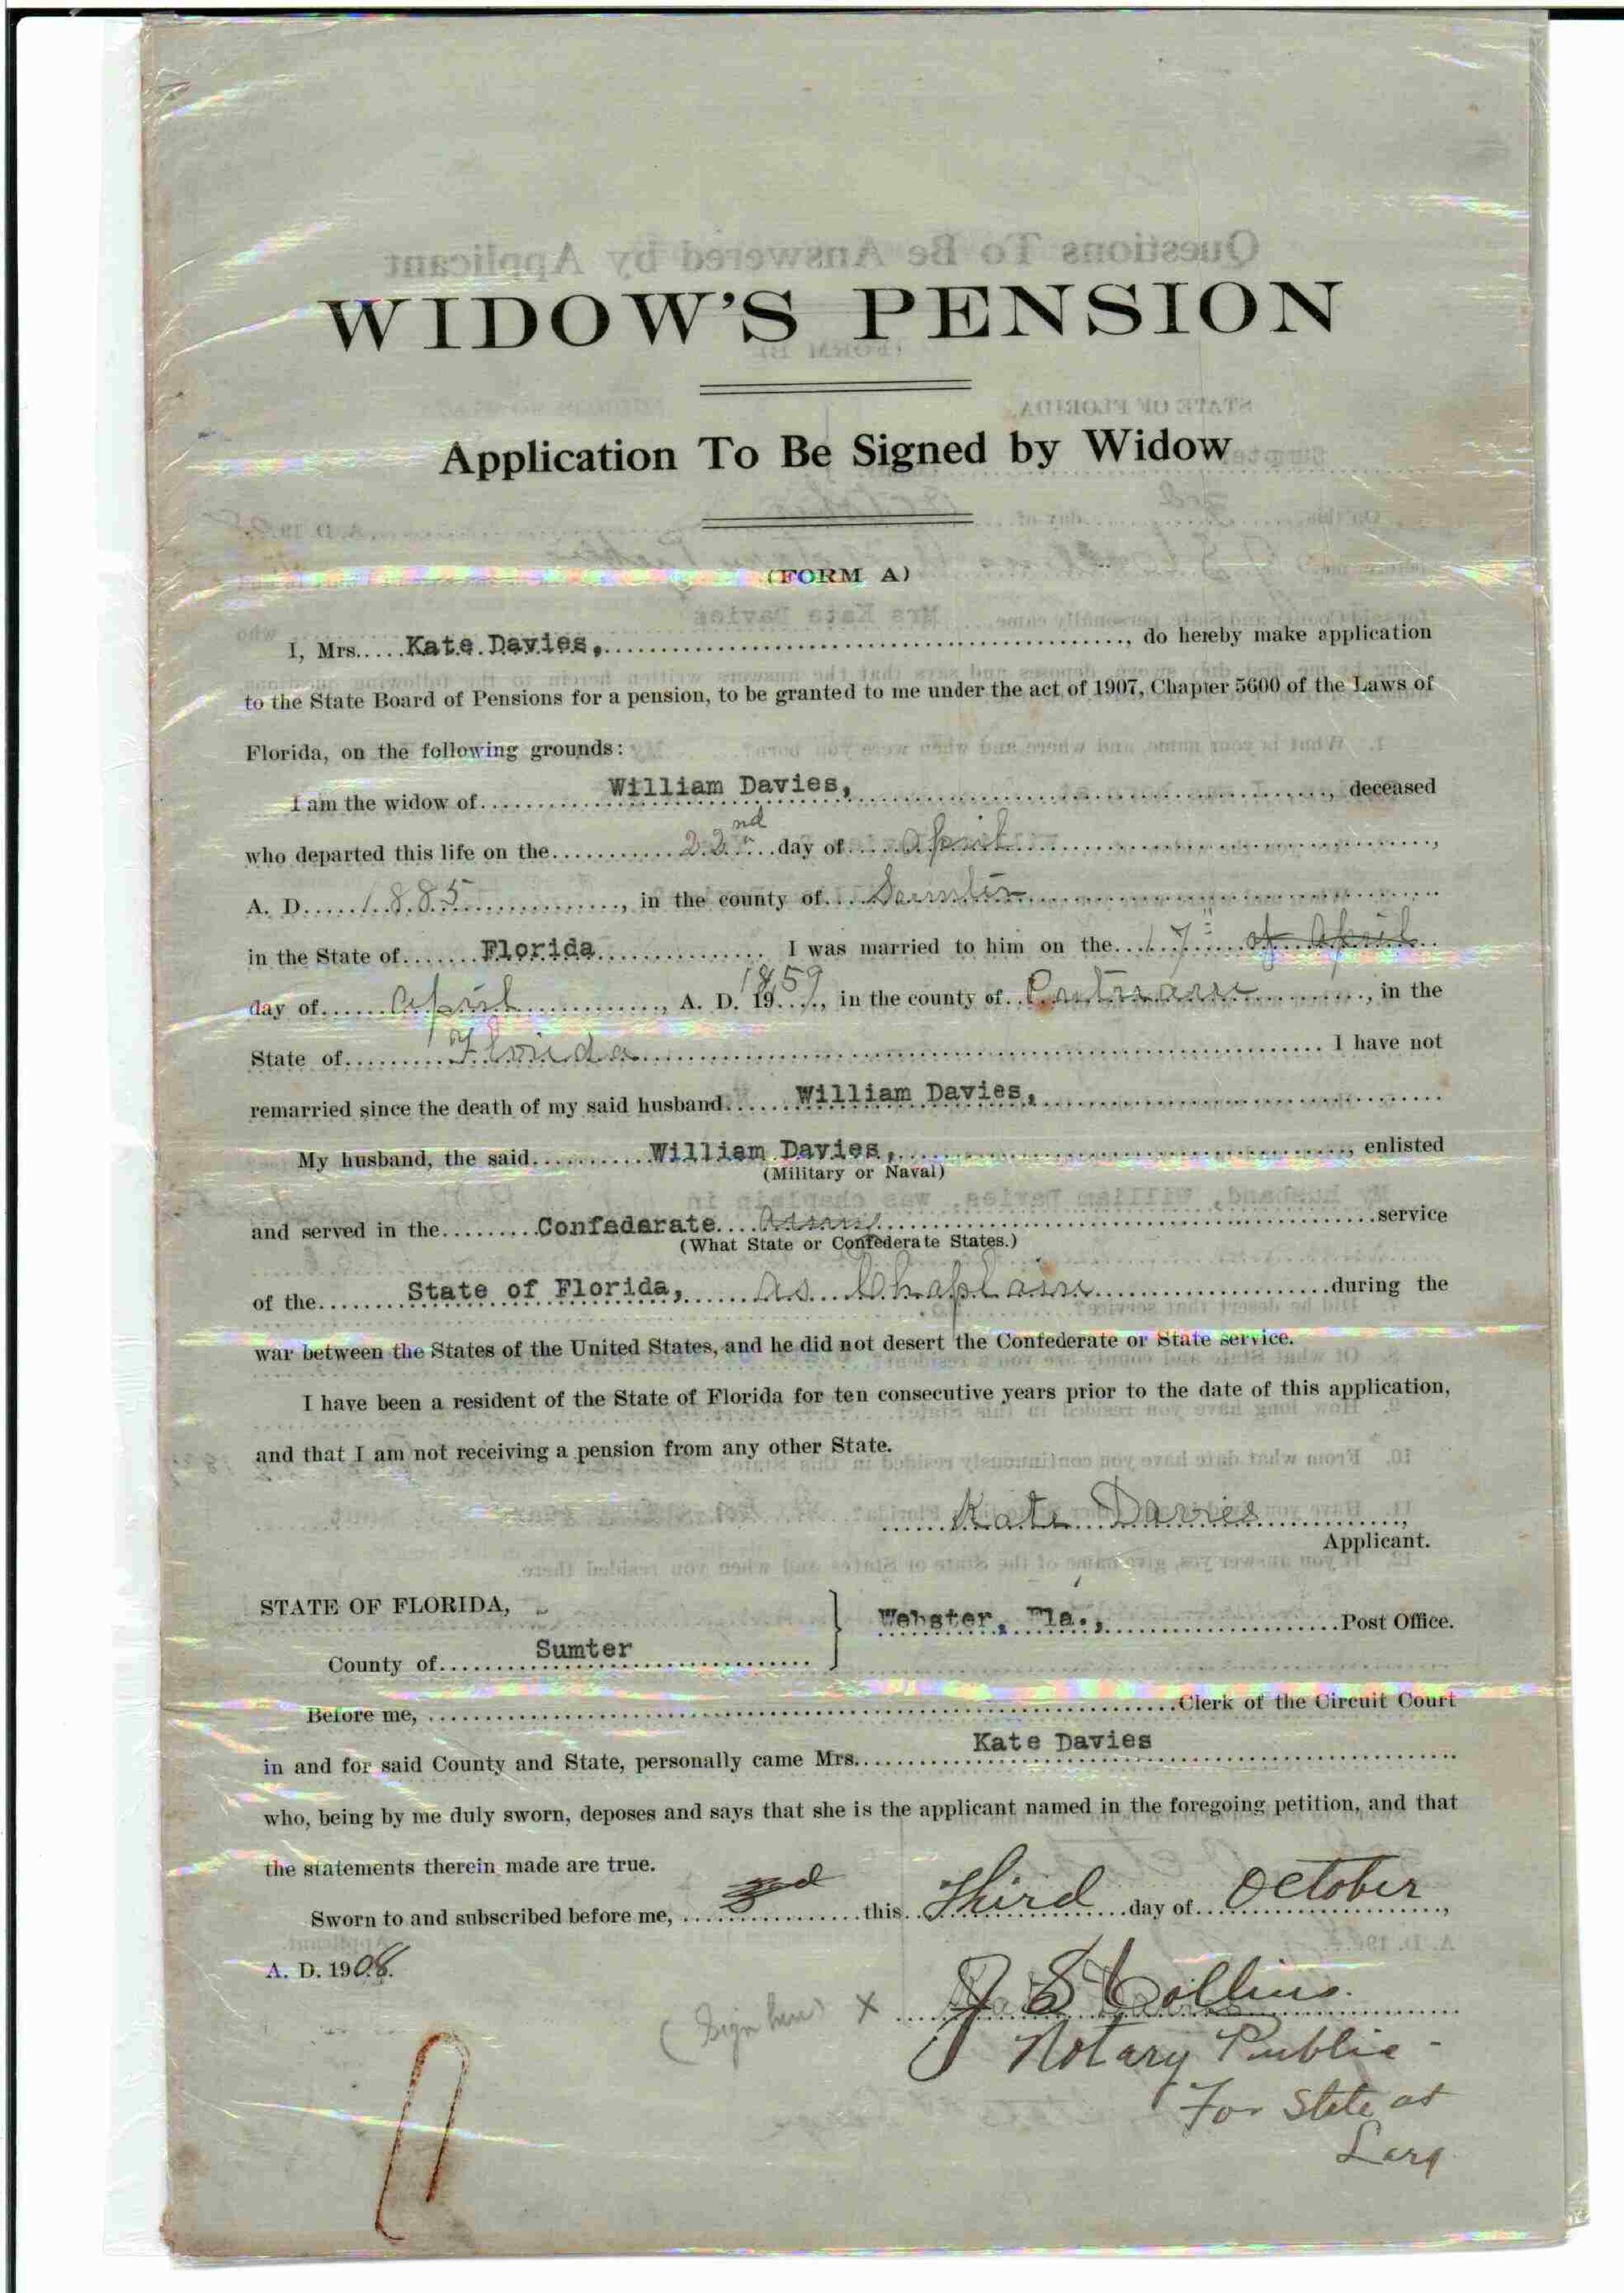 WIDOW'S PENSION
Application To Be Signed by Widow
(FORM A)
I, Mrs. Kate Davies, do hereby make application
to the State Board of Pensions for a pension, to be granted to me under the act of 1907, Chapter 5600 of the Laws of
Florida, on the following grounds:
I am the widow of William Davies, deceased
who departed this life on the 22nd day of April,
A. D. 1885, in the county of Sumter
in the State of Florida I was married to him on the 17 of April
day of April, A. D. 1859, in the county of Putnam, in the
State of Florida I have not
remarried since the death of my said husband William Davies,
My husband, the said William Davies, enlisted
(Military or Naval)
and served in the Confederate Army service
(What State or Confederate States.)
of the State of Florida, as Chaplain during the
war between the States of the United States, and he did not desert the Confederate or State service.
I have been a resident of the State of Florida for ten consecutive years prior to the date of this application,
and that I am not receiving a pension from any other State.
Kate Davies,
Applicant.
STATE OF FLORIDA,
Webster, Fla., Post Office.
County of Sumter
Before me, Clerk of the Circuit Court
in and for said County and State, personally came Mrs. Kate Davies
who, being by me duly sworn, deposes and says that she is the applicant named in the foregoing petition, and that
the statements therein made are true.
Sworn to and subscribed before me, 3rd this Third day of October,
A. D. 1908.
(Sign here) X J S Collins.
Notary Public
For State at
Larg